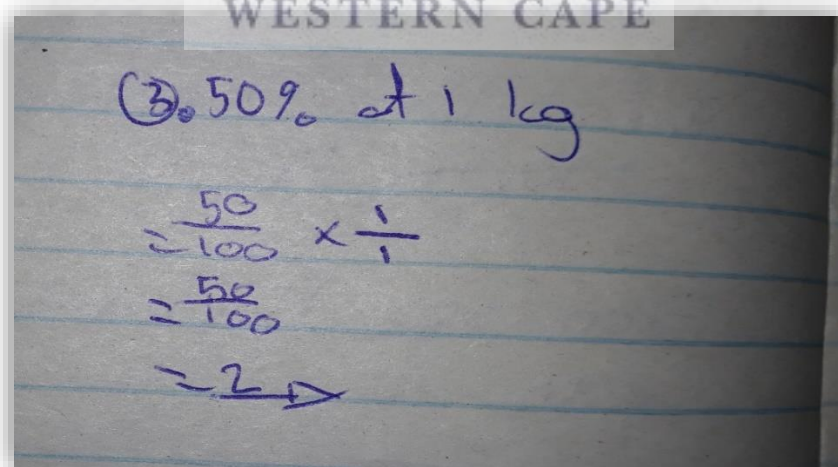 WESTERN CAPE
(3). 50% of 1 kg
= 50/100 × 1/1
= 50/100
= 2